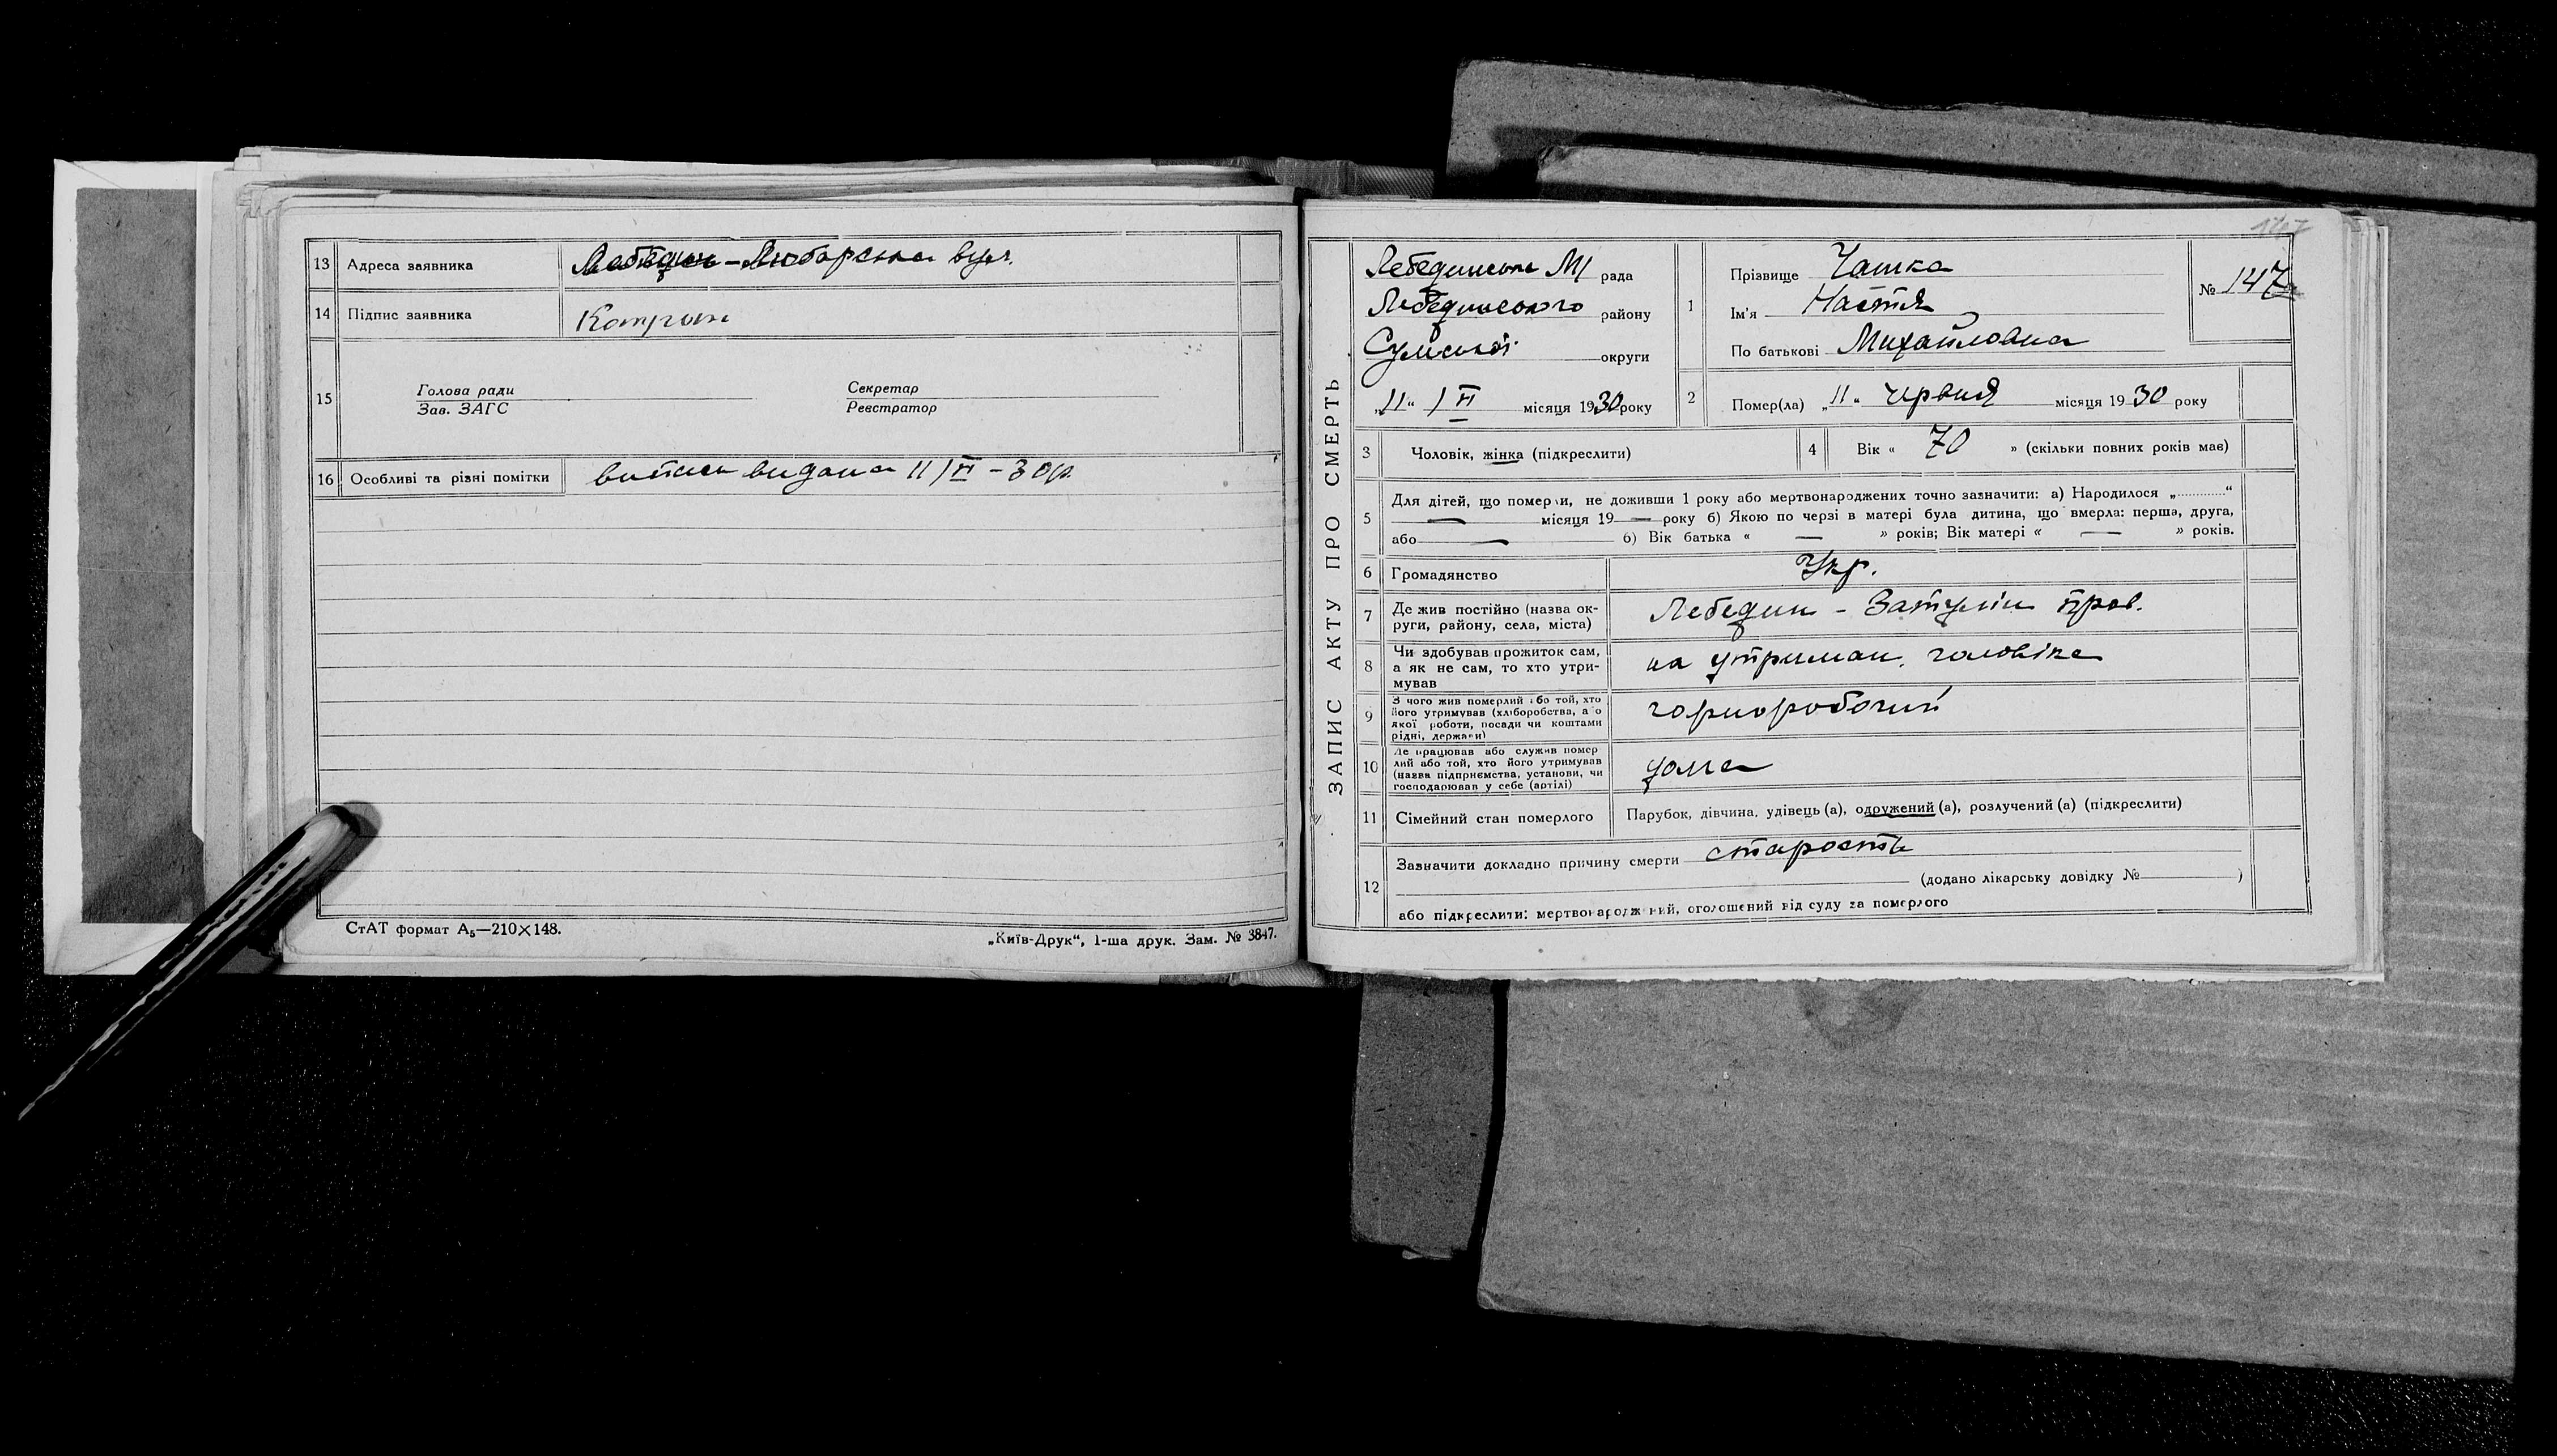 13 Адреса заявника Лебедин – Любарська вул.
14 Підпис заявника
15 Голова ради Секретар
Зав. ЗАГС Реєстратор
16 Особливі та різні помітки випись видана 11/VI – 30р.
СтАТ формат А5—210×148.
„Київ-Друк“, 1-ша друк. Зам. № 3847.
147
ЗАПИС АКТУ ПРО СМЕРТЬ
Лебединська М/ рада
Лебединського району
Сумської округи
„11“ / VI місяця 1930 року
1 Прізвище Чашка
Ім'я Настя
По батькові Михайловна
№ 147
2 Помер(ла) „11“ червня місяця 1930 року
3 Чоловік, жінка (підкреслити)
4 Вік « 70 » (скільки повних років має)
5 Для дітей, що померли, не доживши 1 року або мертвонароджених точно зазначити: а) Народилося „............“
— місяця 19 — року б) Якою по черзі в матері була дитина, що вмерла: перша, друга,
або — б) Вік батька « — » років; Вік матері « — » років.
6 Громадянство Укр.
7 Де жив постійно (назва ок-
руги, району, села, міста) Лебедин – пров.
8 Чи здобував прожиток сам,
а як не сам, то хто утри-
мував на утриман. чоловіка
9 З чого жив померлий або той, хто
його утримував (хліборобства, а о
якої роботи, посади чи коштами
рідні, держави) чорноробочий
10 Де працював або служив помер
лий або той, хто його утримував
(назва підприємства, установи, чи
господарював у себе (артілі) дома
11 Сімейний стан померлого Парубок, дівчина, удівець (а), одружений (а), розлучений (а) (підкреслити)
12 Зазначити докладно причину смерти старость
(додано лікарську довідку № )
або підкреслити: мертвонароджений, оголошений від суду за померлого